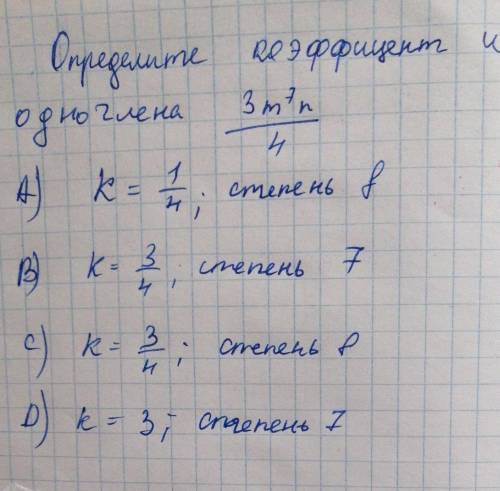 Определите коэффицент и
одночлена 3m⁷n/4
A) K = 1/4; степень 8
B) K = 3/4; степень 7
C) K = 3/4; степень 8
D) K = 3; степень 7